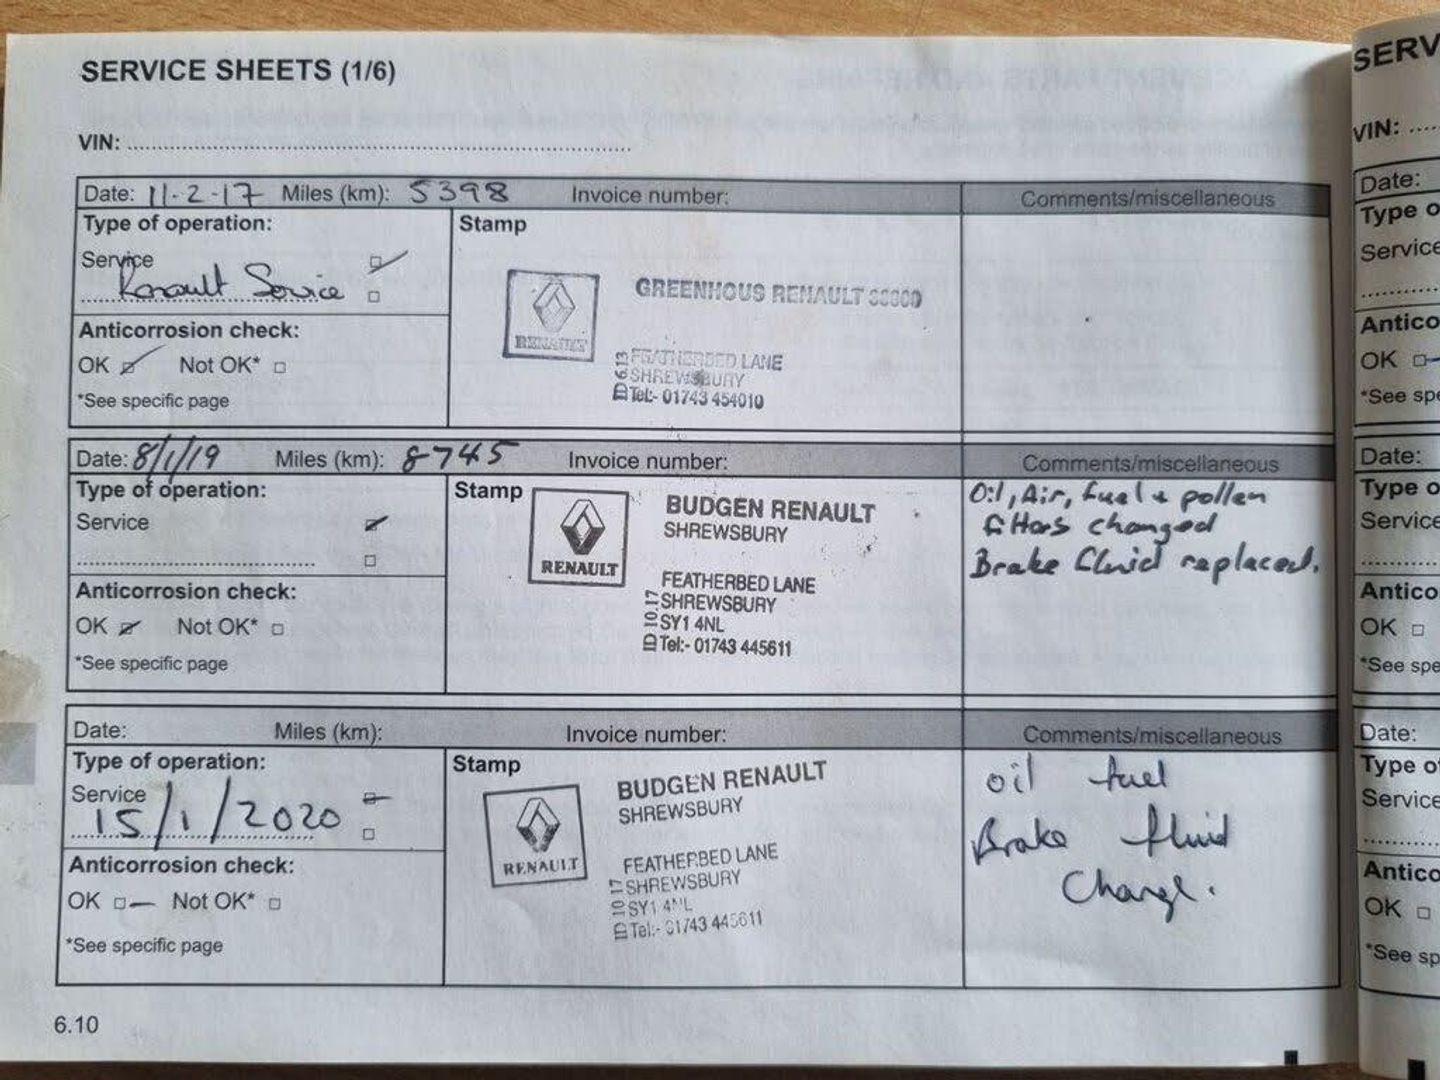 SERVICE SHEETS (1/6)
VIN:
Date: 11-2-17 Miles (km): 5398 Invoice number: Comments/miscellaneous
Type of operation: Stamp
Service
Renault Service
Anticorrosion check:
OK Not OK*
*See specific page
RENAULT
GREENHOUS RENAULT
FEATHERBED LANE
SHREWSBURY
Tel:- 01743 454010
ID 6.13
Date: 8/1/19 Miles (km): 8745 Invoice number: Comments/miscellaneous
Type of operation: Stamp
Service
Anticorrosion check:
OK Not OK*
*See specific page
RENAULT
BUDGEN RENAULT
SHREWSBURY
FEATHERBED LANE
SHREWSBURY
SY1 4NL
Tel:- 01743 445611
ID 10.17
Oil, Air, fuel + pollen
filters changed
Brake fluid replaced.
Date: Miles (km): Invoice number: Comments/miscellaneous
Type of operation: Stamp
Service
15/1/2020
Anticorrosion check:
OK Not OK*
*See specific page
RENAULT
BUDGEN RENAULT
SHREWSBURY
FEATHERBED LANE
SHREWSBURY
SY1 4NL
Tel:- 01743 445611
ID 10 17
oil fuel
Brake fluid
Change.
6.10
SERV
VIN:
Date:
Type o
Service
Antico
OK
*See spe
Date:
Type o
Service
Antico
OK
*See spe
Date:
Type of
Service
Antico
OK
*See sp